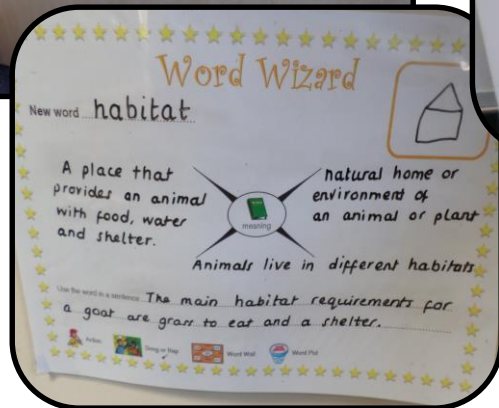 Word Wizard
New word habitat
A place that
provides an animal
with food, water
and shelter.
natural home or
environment of
an animal or plant
meaning
Animals live in different habitats
Use the word in a sentence The main habitat requirements for
a goat are grass to eat and a shelter.
Action
Song or Rap
Word Wall
Word Pot